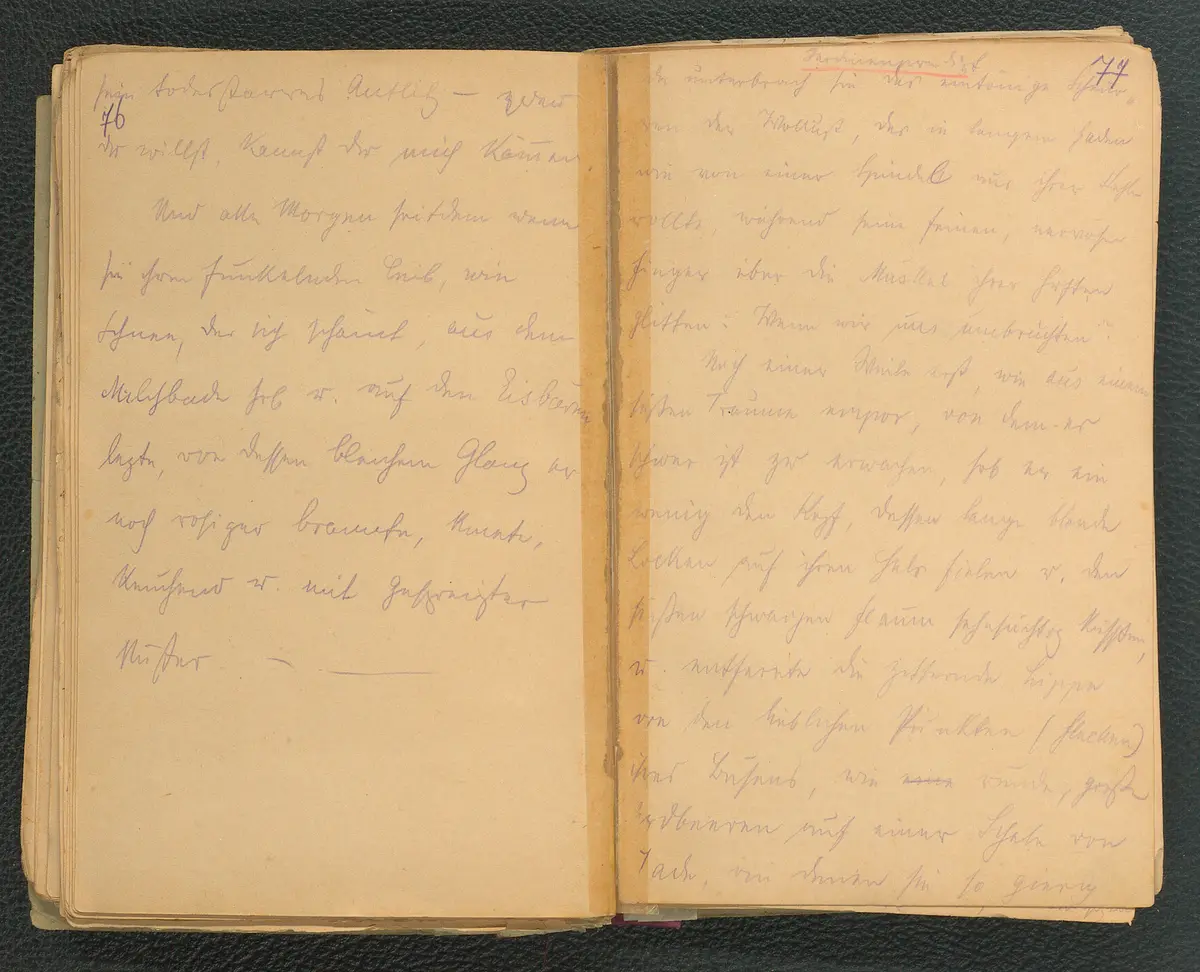 sein todesstarres Antlitz —
76
du willst, kannst du mich
Und alle Morgen seitdem wenn
sie ihren funkelnden Leib, wie
Schnee, der sich schämt, aus dem
Milchbade hob u. auf den Eisbären
legte, von dessen bleichem Glanz er
noch rosiger brannte, kniete,
keuchend u. mit gespreizter
77
da unterbrach sie das eintönige
der Wollust, das in langem Faden
wie von einer Spindel aus ihrer Kehle
rollte, während seine feinen, nervösen
Finger über die Muskel ihrer Hüften
glitten: Wenn wir uns umbrächten
Nach einer Weile erst, wie aus einem
süßen Traume empor, von dem es
schwer ist zu erwachen, hob er ein
wenig den Kopf, dessen lange blonde
Locken auf ihren Hals fielen u. den
süßen schwarzen Flaum sehnsüchtig küssten,
u. entfernte die zitternde Lippe
von den lieblichen Punkten (Flecken)
ihres Busens, wie eine runde, große
Erdbeeren auf einer Schale von
Jade, von denen sie so gierig